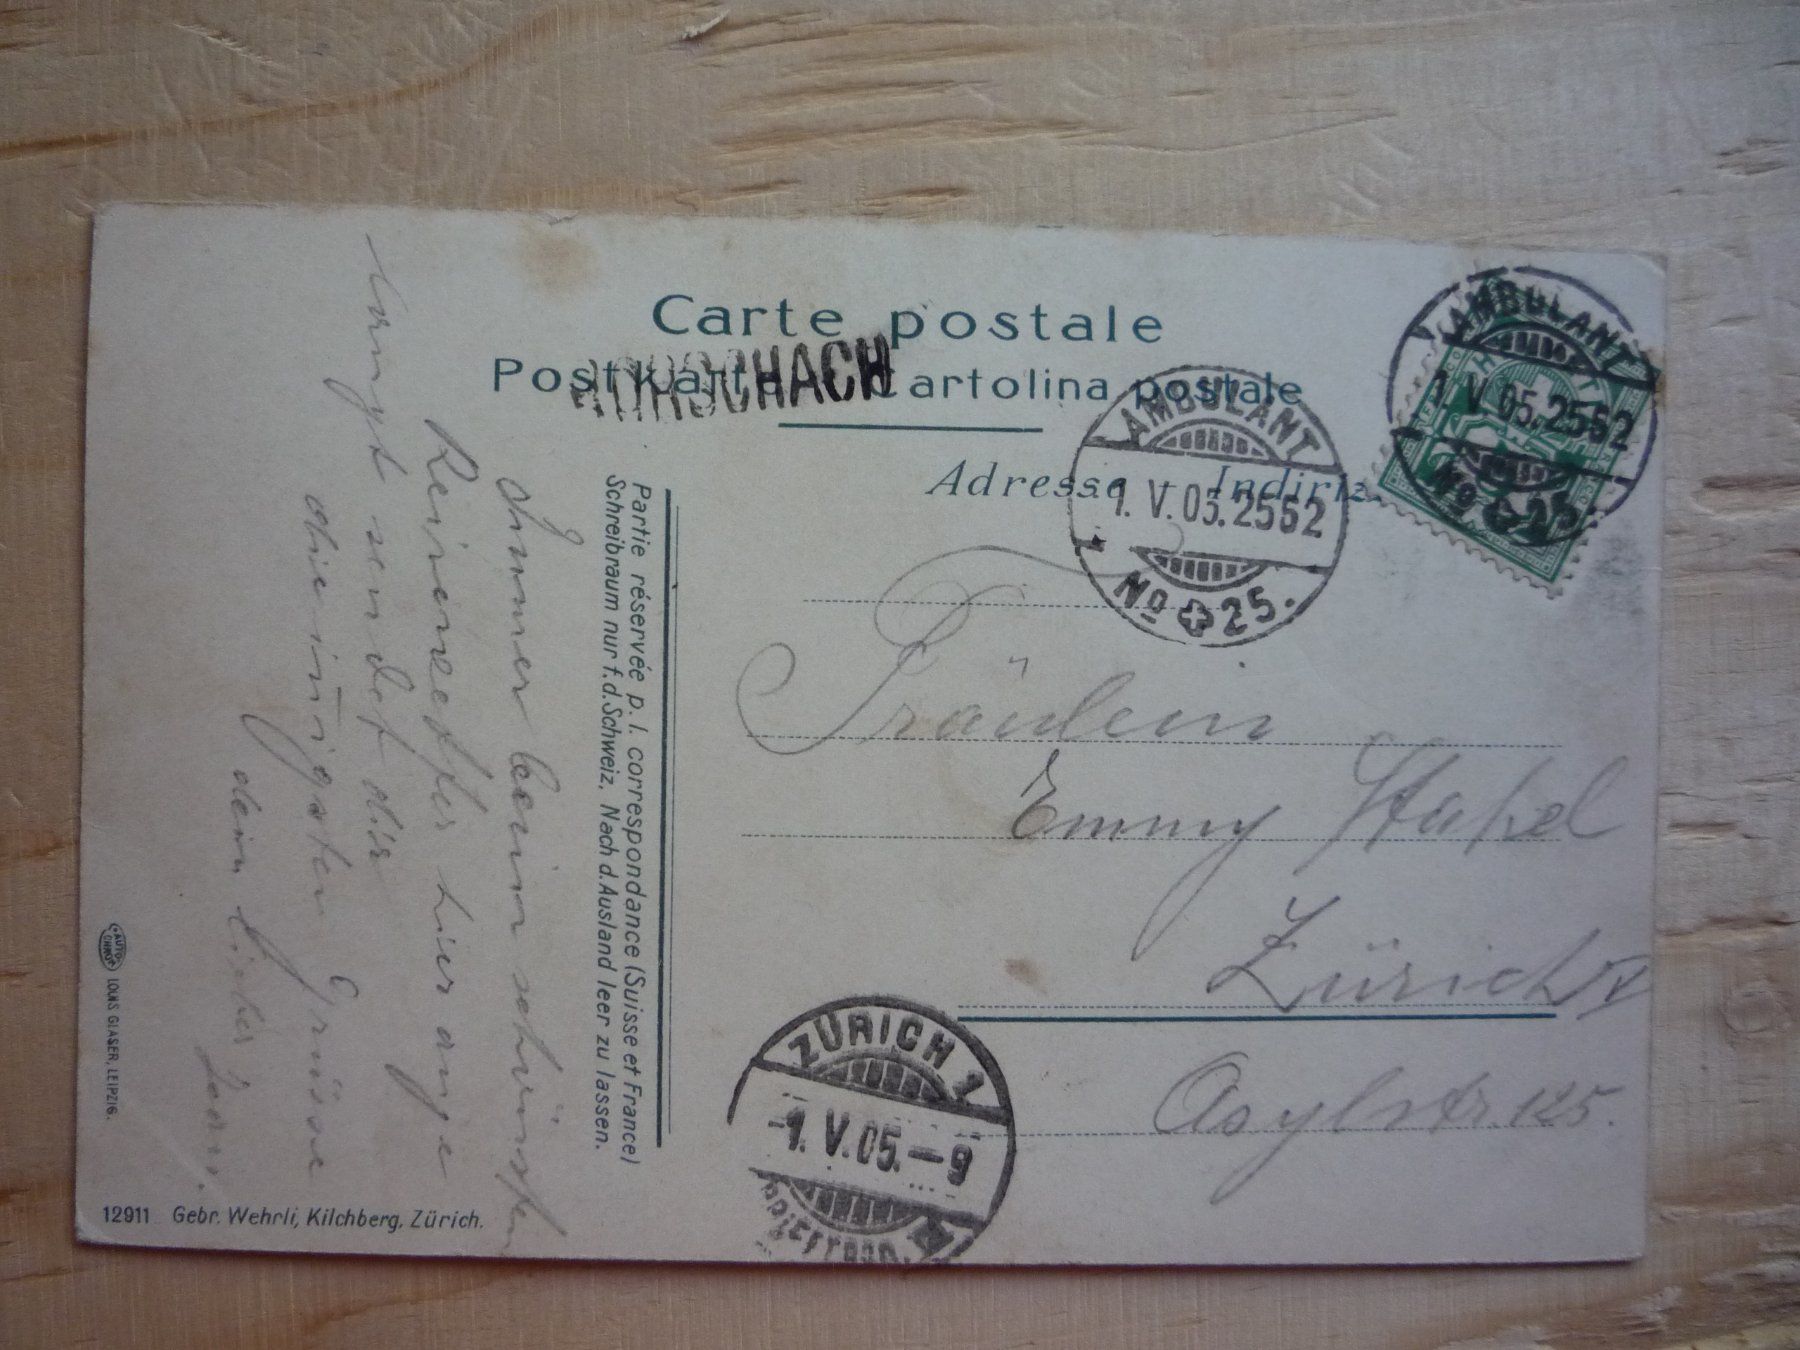 Carte postale
Postkarte Cartolina postale
RORSCHACH
Adresse - Indirizzo
AMBULANT
1. V. 05. 2552
No 25.
AMBULANT
1. V. 05. 2552
No 25.
Partie réservée p. l. correspondance (Suisse et France)
Schreibraum nur f. d. Schweiz. Nach d. Ausland leer zu lassen.
Fräulein
Emmy
Zürich V
Asylstr. 125.
ZÜRICH 1
1. V. 05. – 9
BRIEFTRÄG.
Immer beim schönsten
hier ange
langt sendet dir
die innigsten Grüsse
dein lieber
AUTO
CHROM
LOUIS GLASER, LEIPZIG.
12911 Gebr. Wehrli, Kilchberg, Zürich.